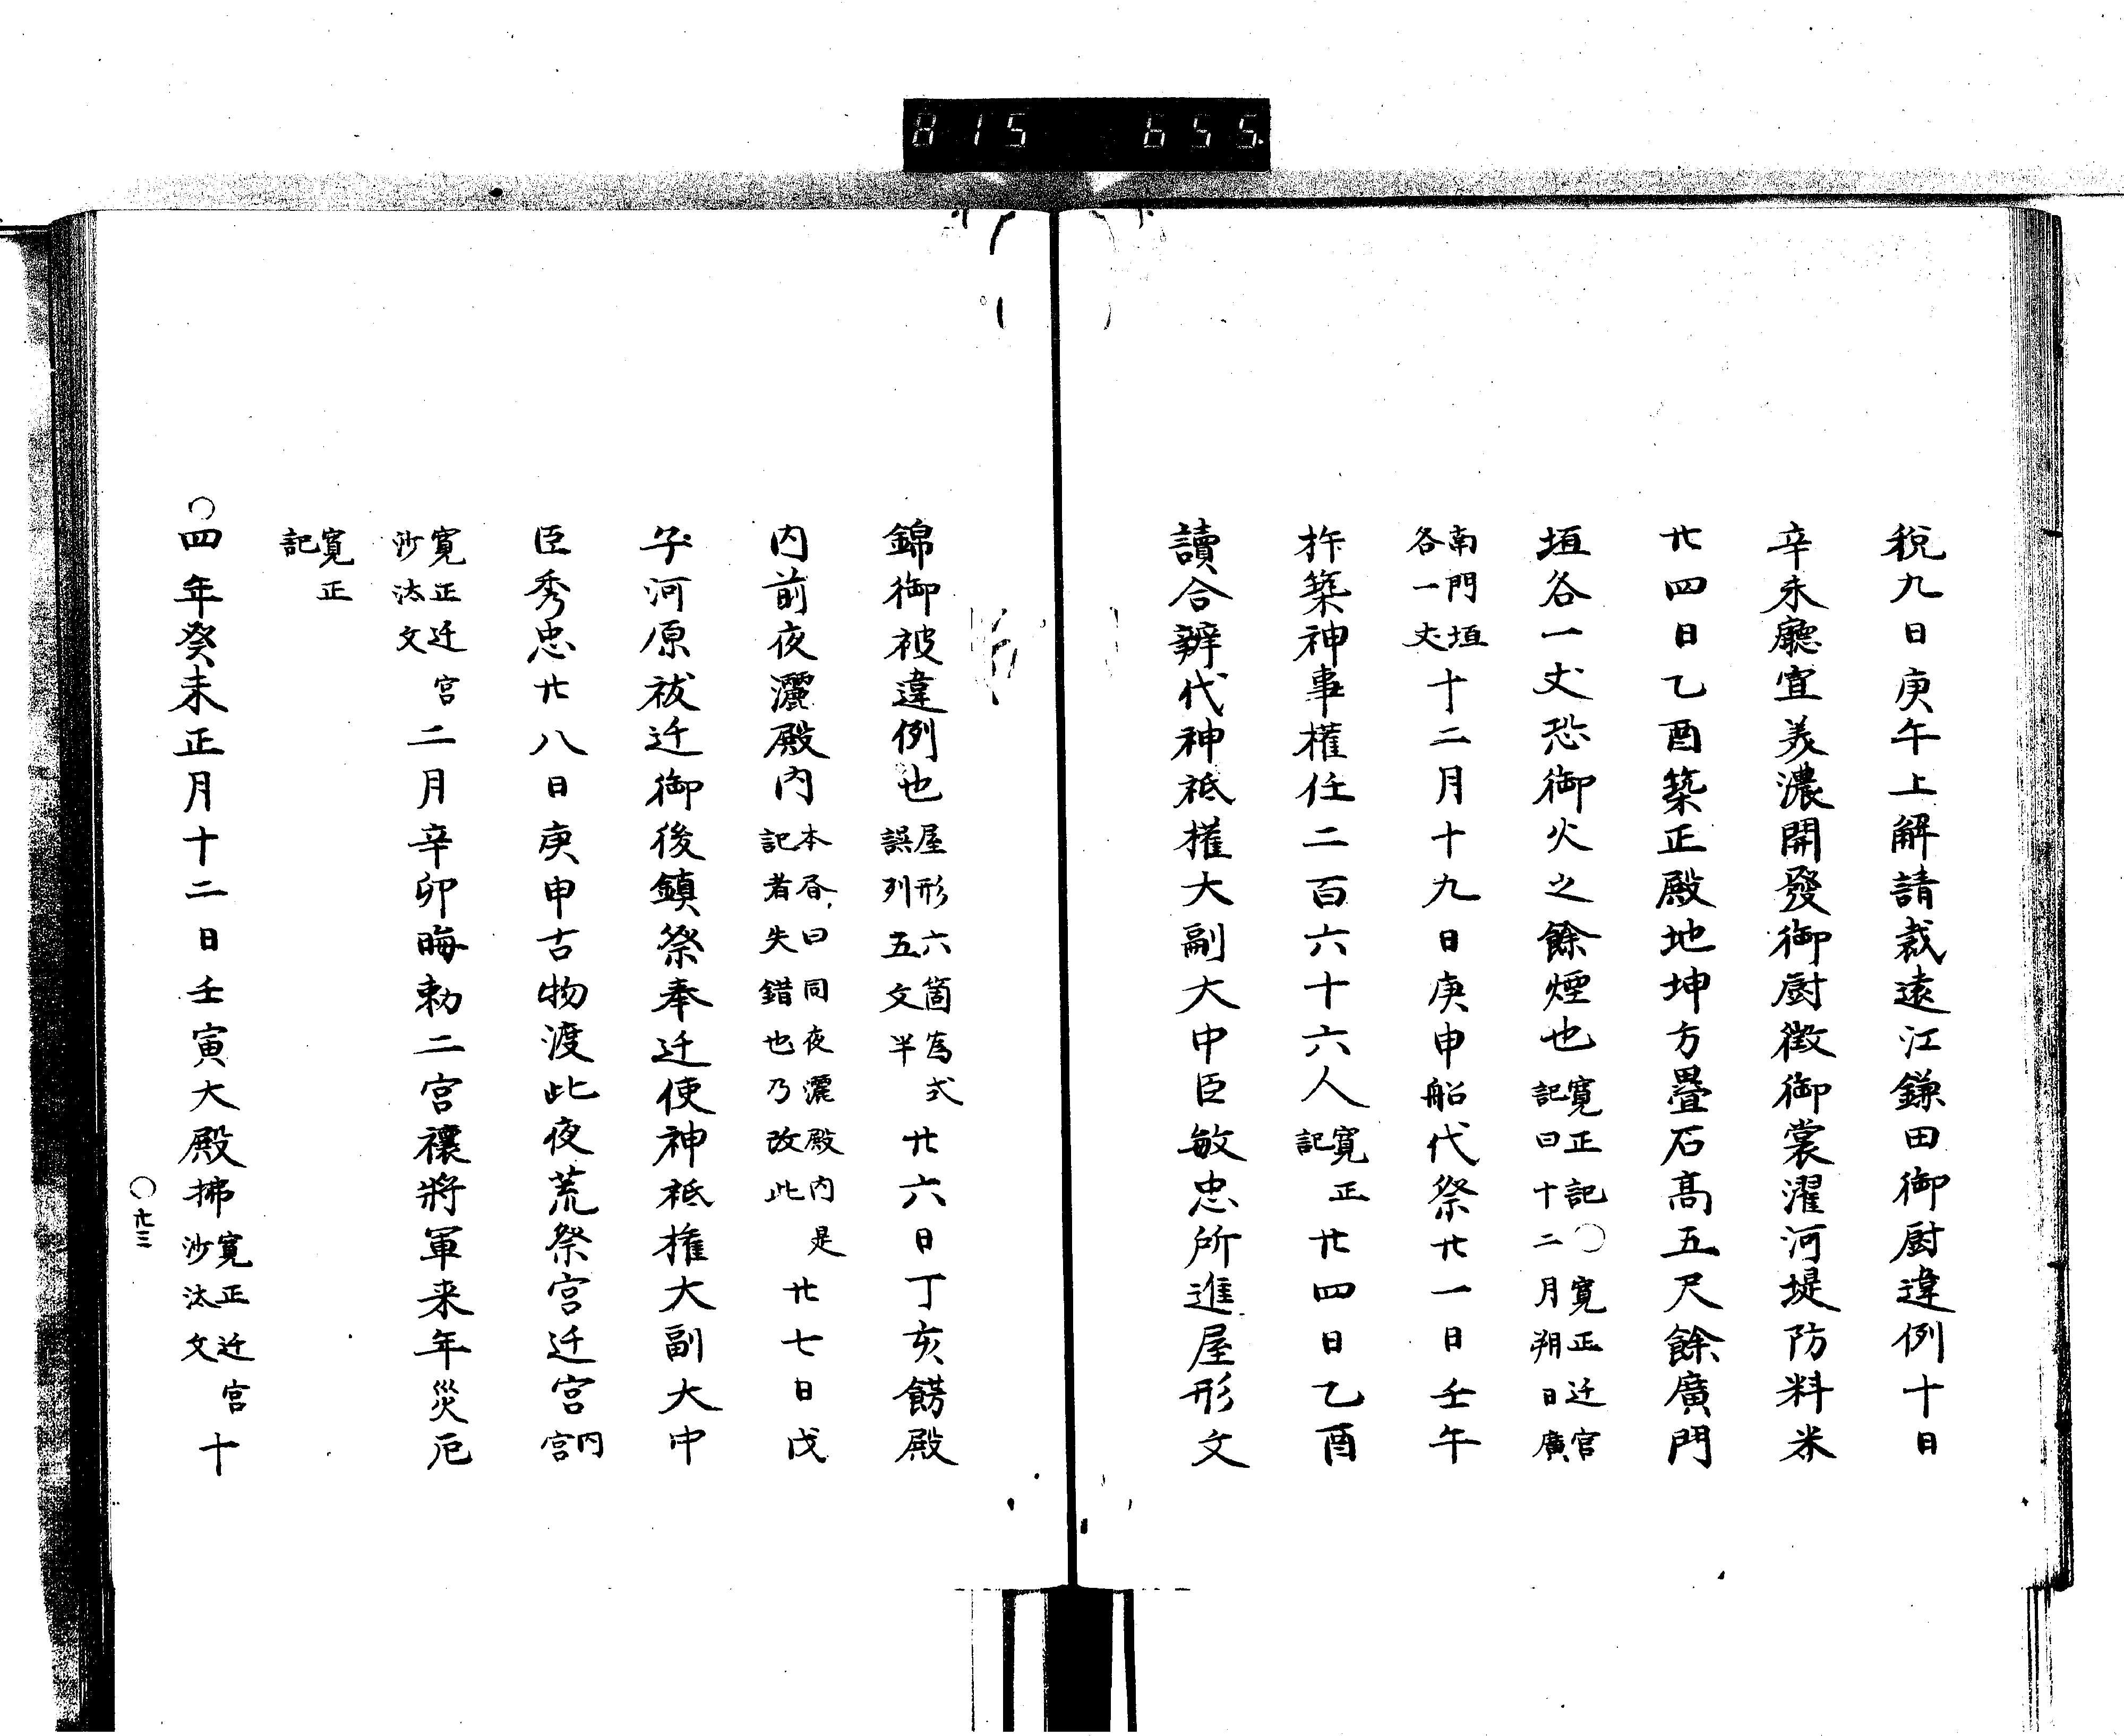 815 655
税九日庚午上解請裁遠江鎌田御厨違例十日
辛未廳宣美濃開發御厨徴御裳濯河堤防料米
廿四日乙酉築正殿地坤方畳石髙五尺餘廣門
垣各一丈恐御火之餘煙也寛正記○寛正迁宮記曰十二月朔日廣
南門垣各一丈十二月十九日庚申船代祭廿一日壬午
杵築神事權任二百六十六人寛正記廿四日乙酉
讀合辨代神祗權大副大中臣敏忠所進屋形文
錦御被違例也屋形六箇為式誤列五文半廿六日丁亥餝殿
内前夜灑殿内本昏曰同夜灑殿内是記者失錯也乃改此廿七日戊
子河原祓迁御後鎮祭奉迁使神祗権大副大中
臣秀忠廿八日庚申古物渡此夜荒祭宮迁宮内宮
寛正迁宮沙汰文二月辛卯晦勅二宮禳將軍来年災厄
寛正記
○四年癸未正月十二日壬寅大殿拂寛正迁宮沙汰文十
○廿三